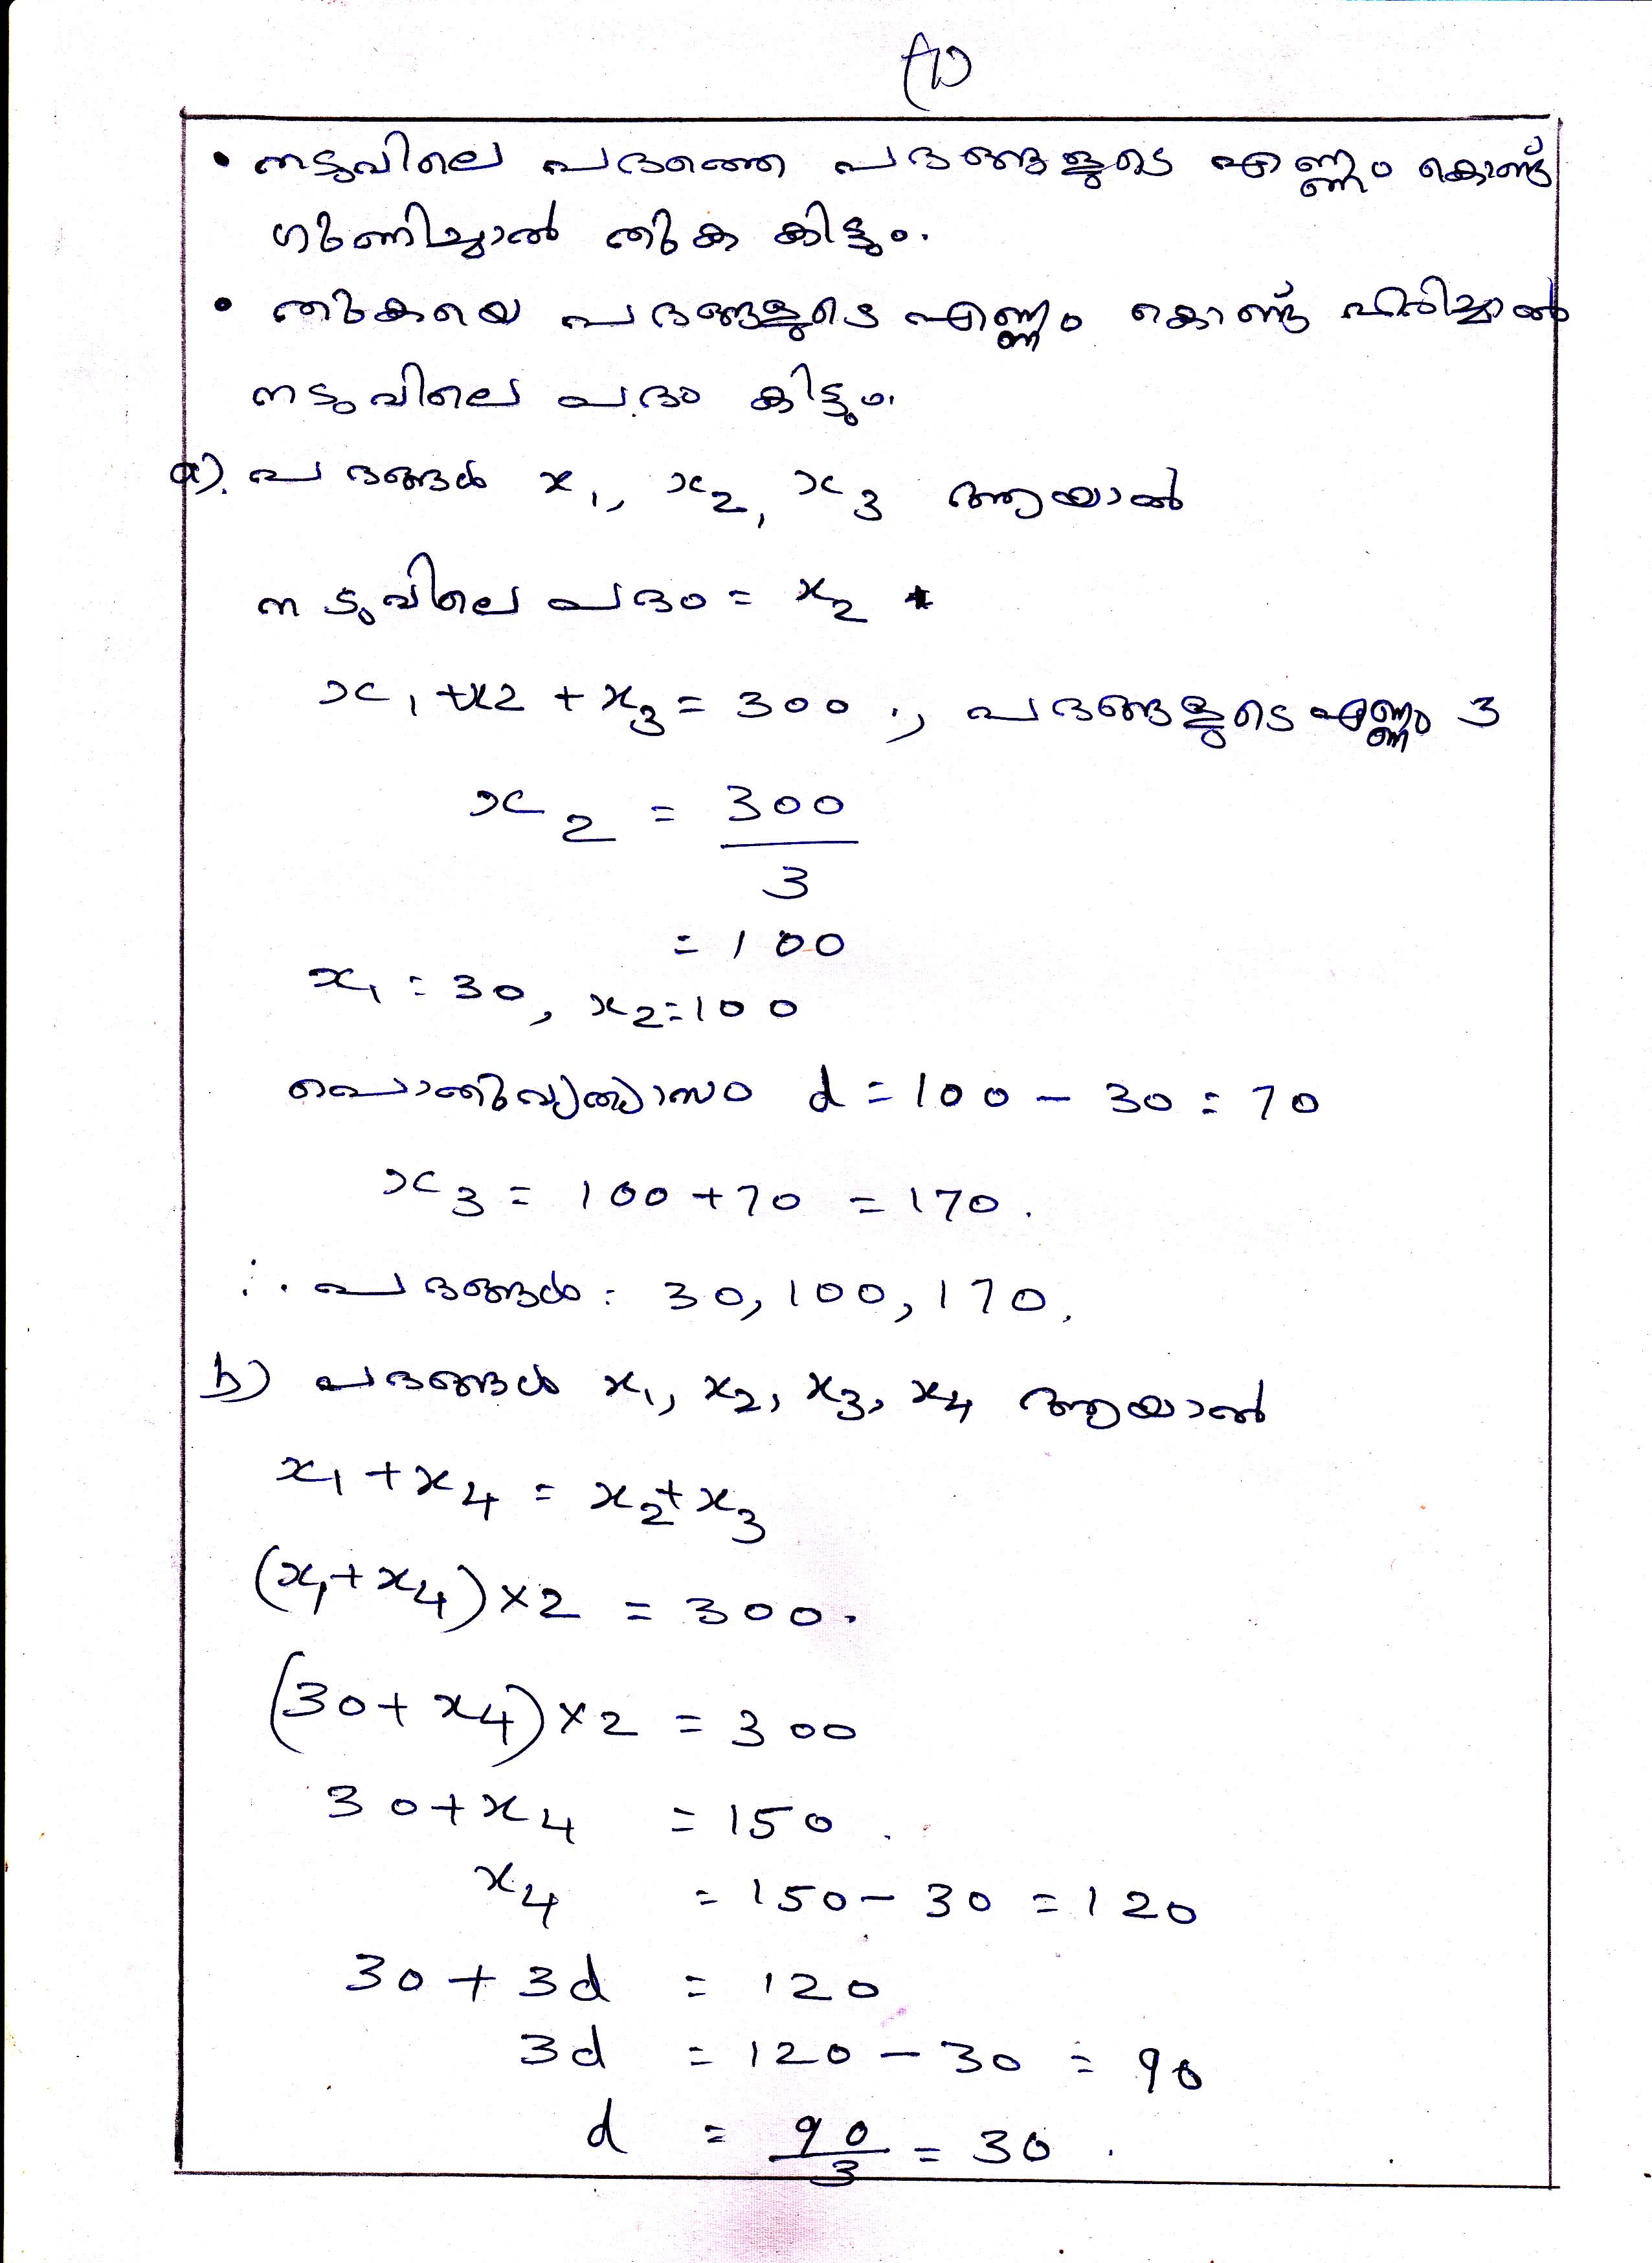 • നടുവിലെ പദത്തെ പദങ്ങളുടെ എണ്ണം കൊണ്ട്
ഗുണിച്ചാൽ തുക കിട്ടും.
• തുകയെ പദങ്ങളുടെ എണ്ണം കൊണ്ട് ഹരിച്ചാൽ
നടുവിലെ പദം കിട്ടും.
a). പദങ്ങൾ x₁, x₂, x₃ ആയാൽ
നടുവിലെ പദം = x₂
x₁ + x2 + x₃ = 300 ., പദങ്ങളുടെ എണ്ണം 3
x₂ = 300
3
= 100
x₁ = 30, x₂ = 100
പൊതുവ്യത്യാസം d = 100 - 30 = 70
x₃ = 100 + 70 = 170.
∴ പദങ്ങൾ: 30, 100, 170.
b) പദങ്ങൾ x₁, x₂, x₃, x₄ ആയാൽ
x₁ + x₄ = x₂ + x₃
(x₁ + x₄) × 2 = 300.
(30 + x₄) × 2 = 300
30 + x₄ = 150.
x₄ = 150 - 30 = 120
30 + 3d = 120
3d = 120 - 30 = 90
d = 90/3 = 30.